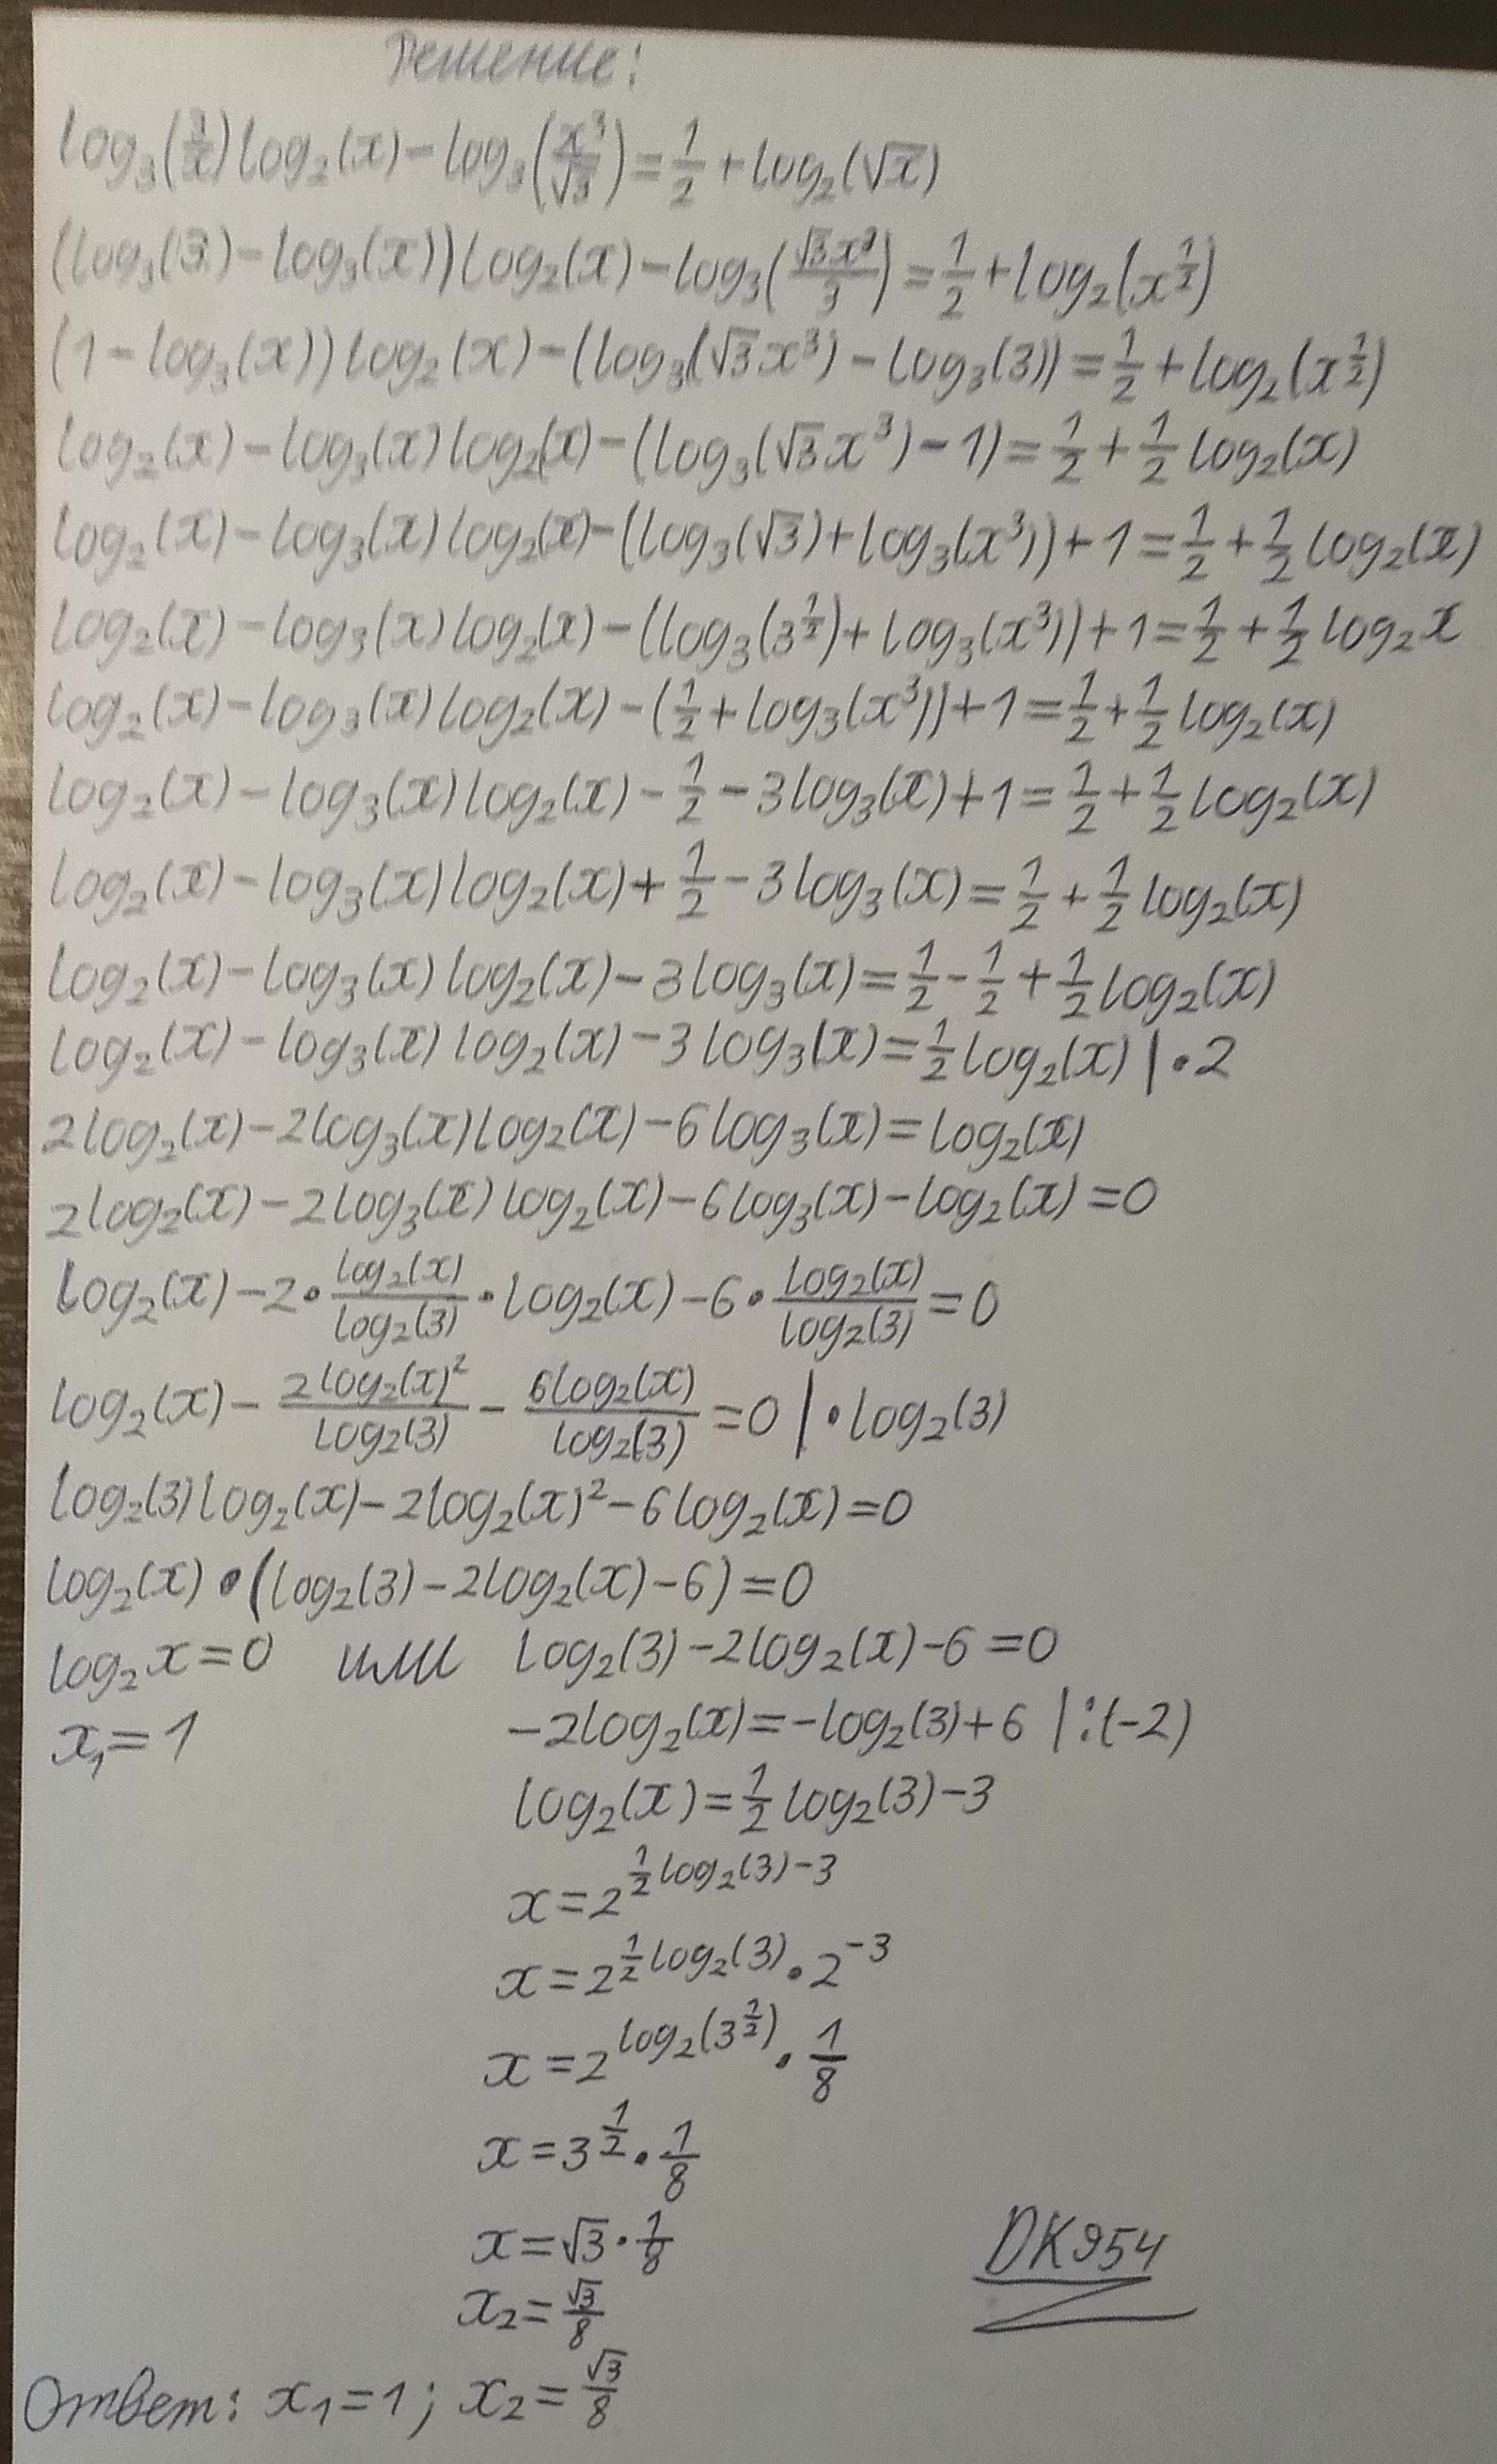 Решение:
log₃(3/x)log₂(x)-log₃(x³/√3)=1/2+log₂(√x)
(log₃(3)-log₃(x))log₂(x)-log₃(√3x³/3)=1/2+log₂(x^(1/2))
(1-log₃(x))log₂(x)-(log₃(√3x³)-log₃(3))=1/2+log₂(x^(1/2))
log₂(x)-log₃(x)log₂(x)-(log₃(√3x³)-1)=1/2+1/2log₂(x)
log₂(x)-log₃(x)log₂(x)-(log₃(√3)+log₃(x³))+1=1/2+1/2log₂(x)
log₂(x)-log₃(x)log₂(x)-(log₃(3^(1/2))+log₃(x³))+1=1/2+1/2log₂x
log₂(x)-log₃(x)log₂(x)-(1/2+log₃(x³))+1=1/2+1/2log₂(x)
log₂(x)-log₃(x)log₂(x)-1/2-3log₃(x)+1=1/2+1/2log₂(x)
log₂(x)-log₃(x)log₂(x)+1/2-3log₃(x)=1/2+1/2log₂(x)
log₂(x)-log₃(x)log₂(x)-3log₃(x)=1/2-1/2+1/2log₂(x)
log₂(x)-log₃(x)log₂(x)-3log₃(x)=1/2log₂(x) |·2
2log₂(x)-2log₃(x)log₂(x)-6log₃(x)=log₂(x)
2log₂(x)-2log₃(x)log₂(x)-6log₃(x)-log₂(x)=0
log₂(x)-2·log₂(x)/log₂(3)·log₂(x)-6·log₂(x)/log₂(3)=0
log₂(x)-2log₂(x)²/log₂(3)-6log₂(x)/log₂(3)=0 |·log₂(3)
log₂(3)log₂(x)-2log₂(x)²-6log₂(x)=0
log₂(x)·(log₂(3)-2log₂(x)-6)=0
log₂x=0 или log₂(3)-2log₂(x)-6=0
x₁=1 -2log₂(x)=-log₂(3)+6 |:(-2)
log₂(x)=1/2log₂(3)-3
x=2^(1/2log₂(3)-3)
x=2^(1/2log₂(3))·2⁻³
x=2^(log₂(3^(1/2)))·1/8
x=3^(1/2)·1/8
x=√3·1/8
x₂=√3/8
DK954
Ответ: x₁=1; x₂=√3/8